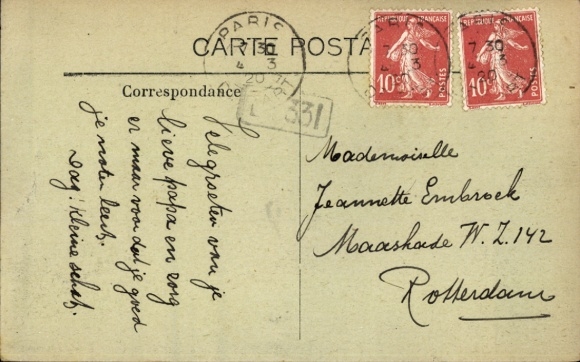 CARTE POSTA
Correspondance
PARIS
7 30
4 3
20
331
RÉPUBLIQUE FRANÇAISE
10c
RÉPUBLIQUE FRANÇAISE
10c
7 30
3
20
Velegroeten van je
lieve papa en zorg
er maar voor dat je goed
je noten leert.
Dag! kleine schat.
Mademoiselle
Jeannette Embroek
Maaskade W.Z. 142
Rotterdam